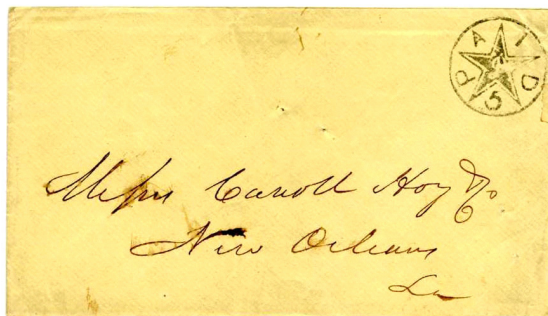 PAID
5
Messrs Carroll Hoy & Co
New Orleans
La